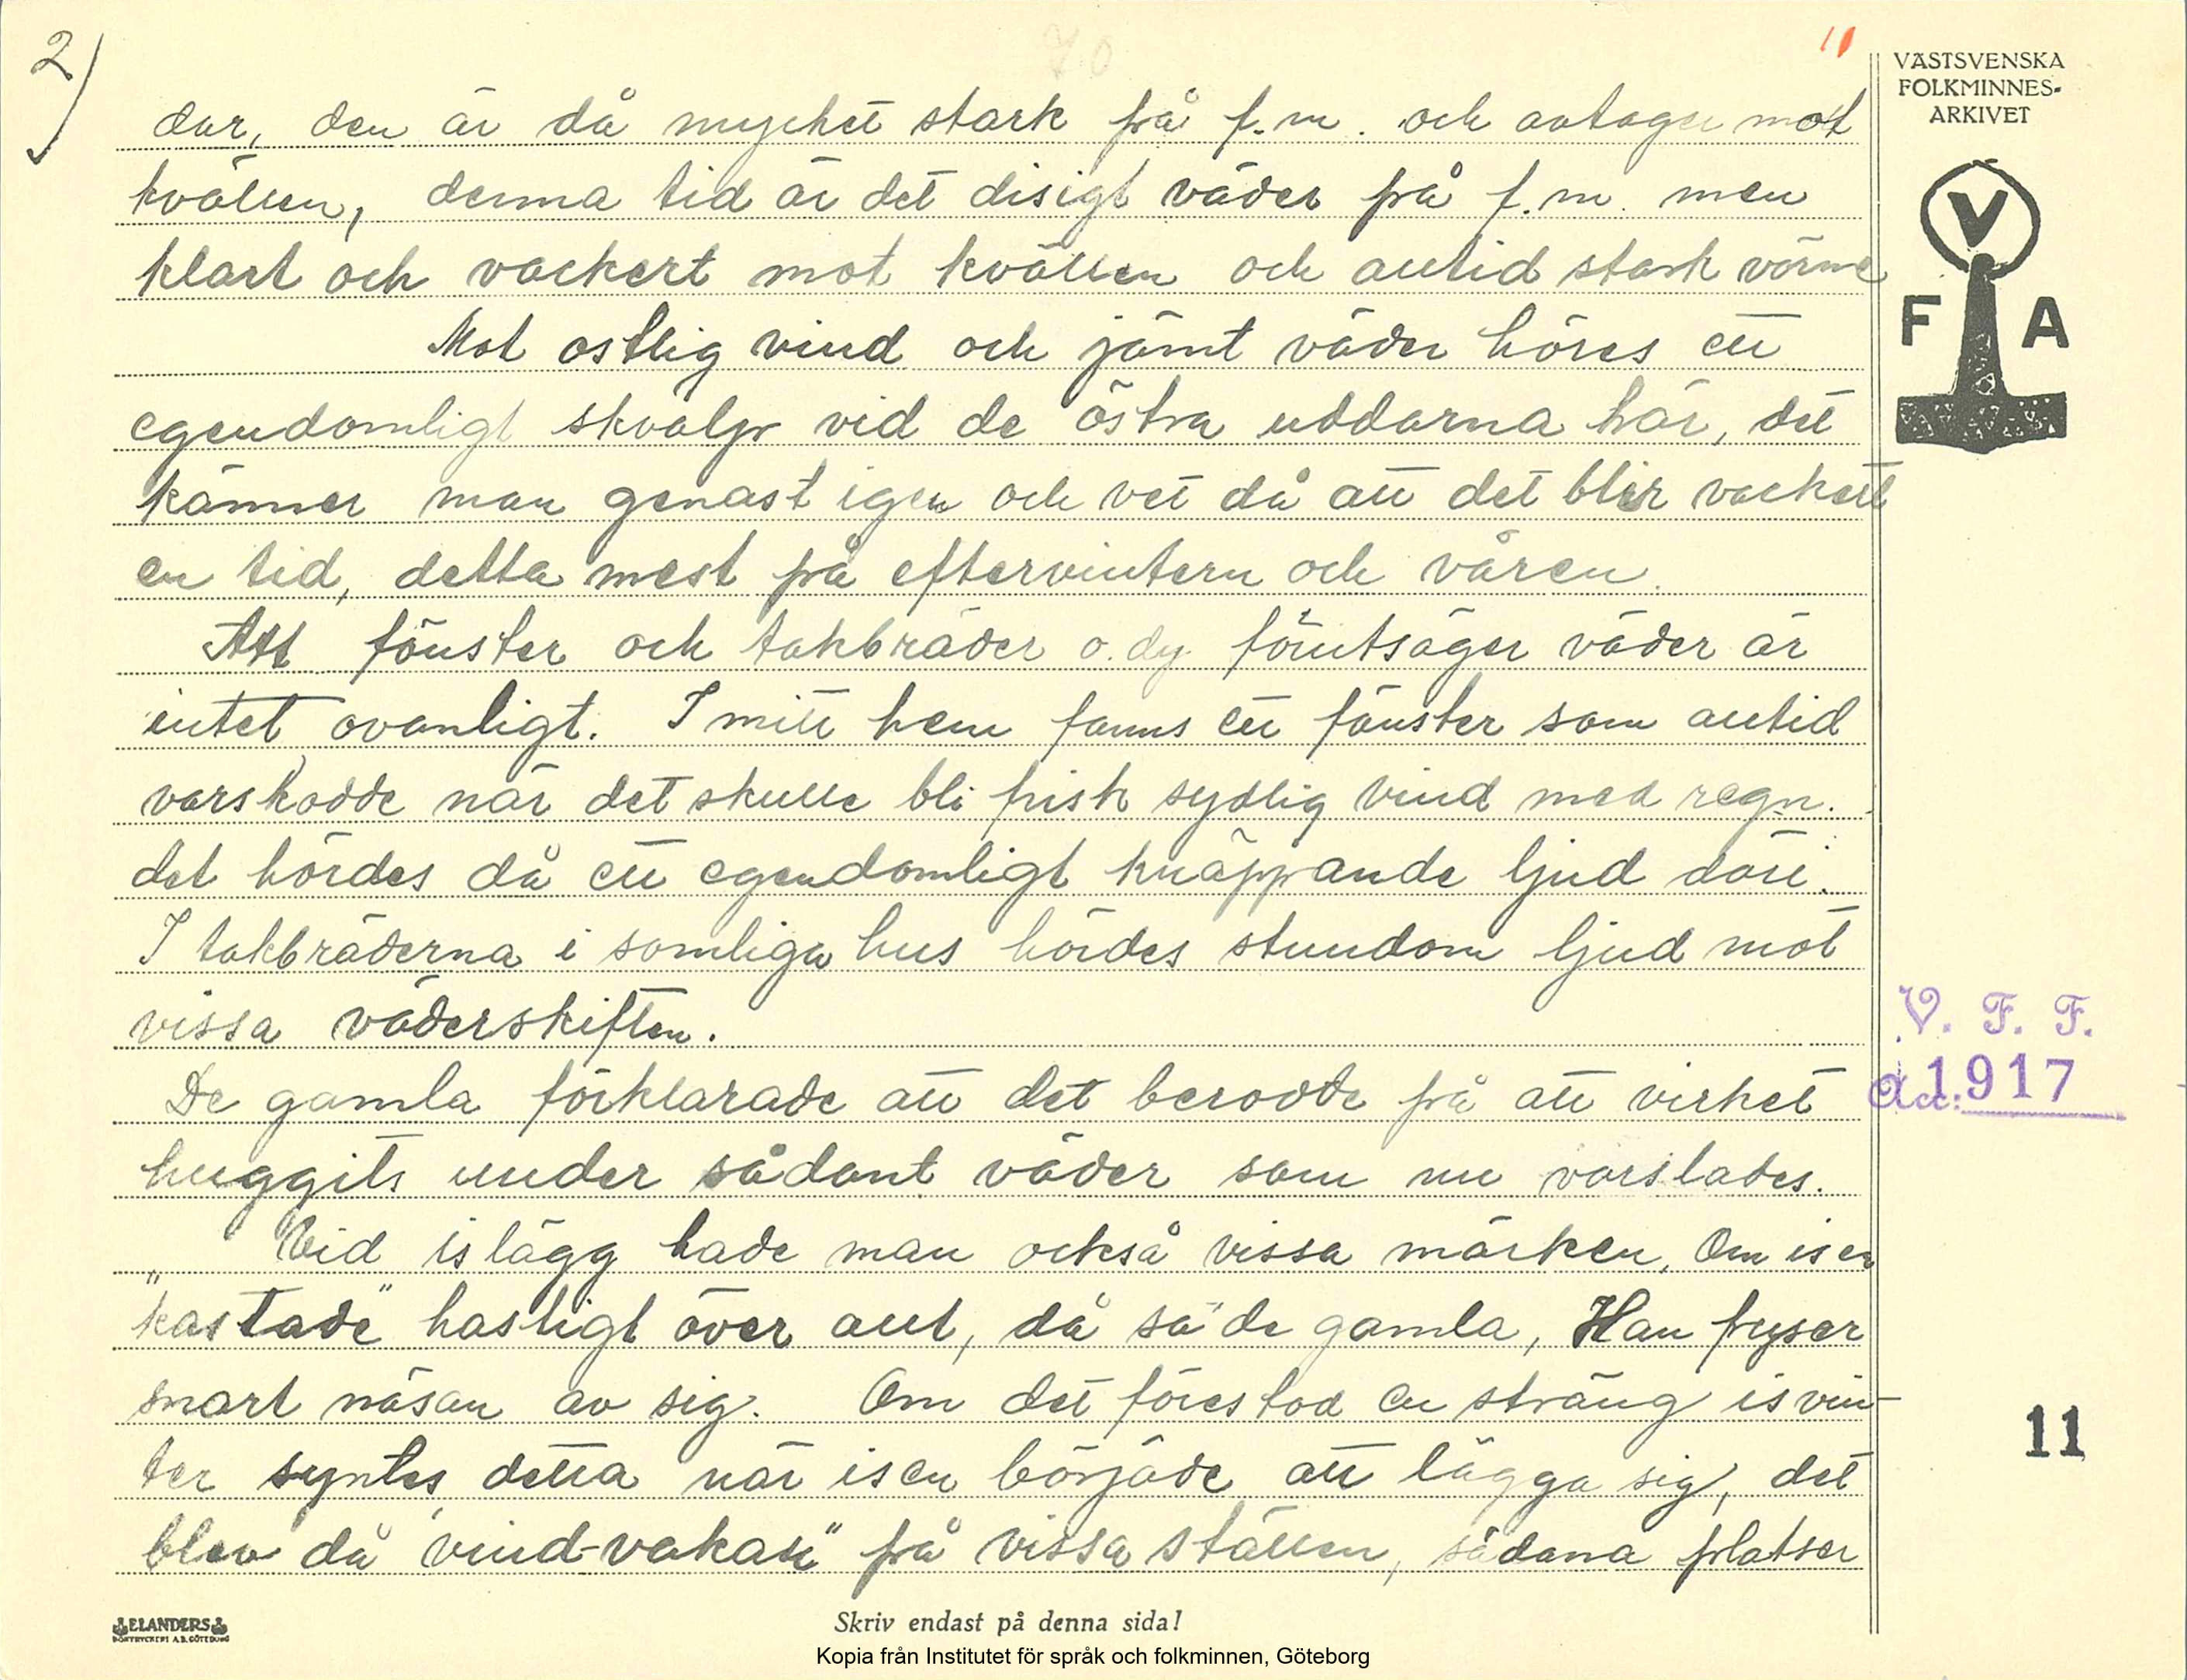 2)
11
VÄSTSVENSKA
FOLKMINNES-
ARKIVET
V
F A
dar, den är då mycket stark på f.m. och avtager mot
kvällen, denna tid är det disigt väder på f.m. men
klart och vackert mot kvällen och alltid stark värme
Mot ostlig vind och jämt väder höres ett
egendomligt skvalp vid de östra uddarna här, det
känner man genast igen och vet då att det blir vackert
en tid, detta mest på eftervintern och våren.
Att fönster och takbräder o.dy. förutsäger väder är
intet ovanligt. I mitt hem fanns ett fönster som alltid
varskodde när det skulle bli frisk sydlig vind med regn.
det hördes då ett egendomligt knäppande ljud däri.
I takbräderna i somliga hus hördes stundom ljud mot
vissa väderskiften.
De gamla förklarade att det berodde på att virket
huggits under sådant väder som nu varslades.
Vid islägg hade man också vissa märken. Om isen
"kastade" hastigt över allt, då sa' de gamla, Han fryser
snart näsan av sig. Om det förestod en sträng isvin-
ter syntes detta när isen började att lägga sig, det
blev då "vind-vakar" på vissa ställen, sådana platser
V. F. F.
Acc: 1917
11
ELANDERS
BOKTRYCKERI A.B. GÖTEBORG
Skriv endast på denna sida!
Kopia från Institutet för språk och folkminnen, Göteborg